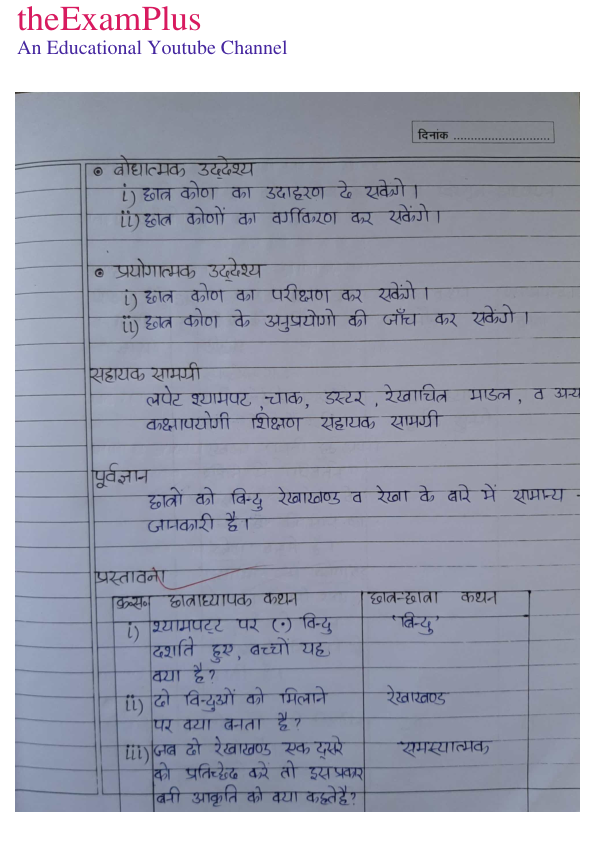 theExamPlus
An Educational Youtube Channel
दिनांक ............................
• बोधात्मक उद्देश्य
i) छात्र कोण का उदाहरण दे सकेगे।
ii) छात्र कोणों का वर्गीकरण कर सकेंगे।
• प्रयोगात्मक उद्देश्य
i) छात्र कोण का परीक्षण कर सकेंगे।
ii) छात्र कोण के अनुप्रयोगो की जाँच कर सकेंगे।
सहायक सामग्री
लपेट श्यामपट, चाक, डस्टर, रेखाचित्र माडल, व अन्य
कक्षापयोगी शिक्षण सहायक सामग्री
पूर्वज्ञान
छात्रो को बिन्दु रेखाखण्ड व रेखा के बारे में सामान्य -
जानकारी है।
प्रस्तावना
क्र०सं० छात्राध्यापक कथन छात्र-छात्रा कथन
i) श्यामपट्ट पर (•) बिन्दु 'बिन्दु'
दर्शाते हुए, बच्चों यह
क्या है?
ii) दो बिन्दुओं को मिलाने रेखाखण्ड
पर क्या बनता है?
iii) जब दो रेखाखण्ड एक दूसरे समस्यात्मक
को प्रतिच्छेद करें तो इस प्रकार
बनी आकृति को क्या कहते है?